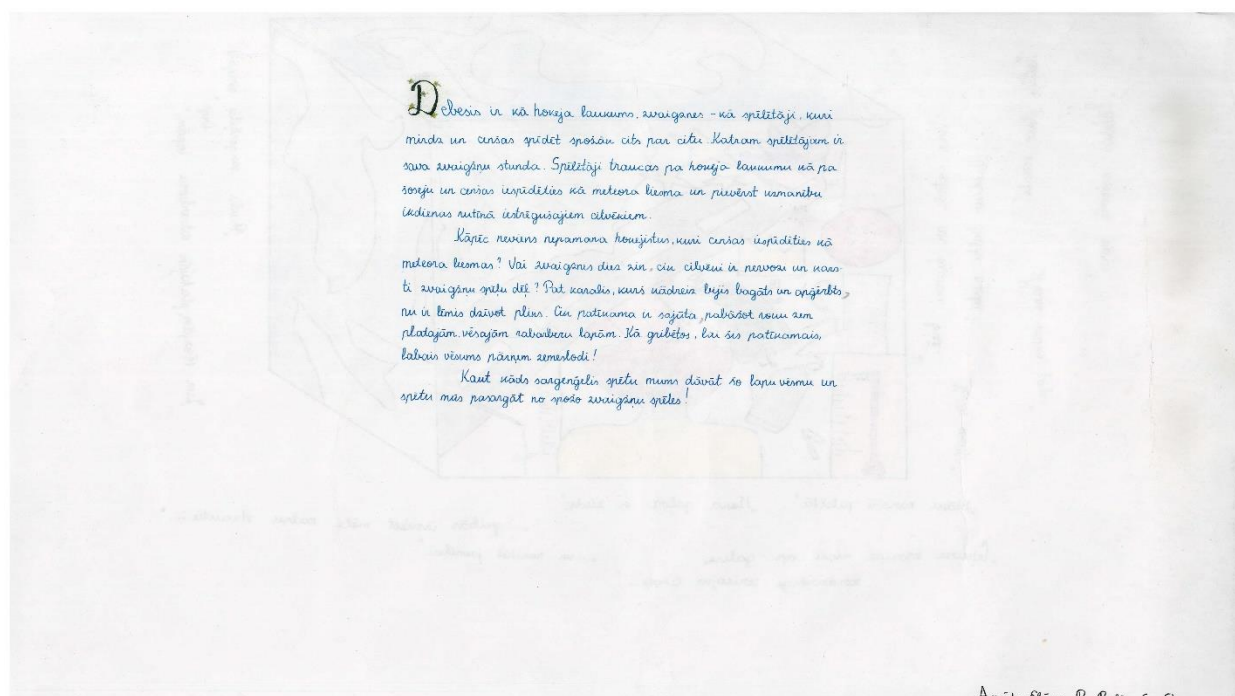 Debesis ir kā hokeja laukums, zvaigznes - kā spēlētāji, kuri
mirdz un cenšas spīdēt spožāk cits par citu. Katram spēlētājam ir
sava zvaigžņu stunda. Spēlētāji traucas pa hokeja laukumu kā pa
šoseju un cenšas iespīdēties kā meteora liesma un pievērst uzmanību
ikdienas rutīnā iestrēgušajiem cilvēkiem.
Kāpēc neviens nepamana hokejistus, kuri cenšas iespīdēties kā
meteora liesmas? Vai zvaigznes dies zin, cik cilvēki ir nervozi un kars-
ti zvaigžņu spēļu dēļ? Pat karalis, kurš kādreiz bijis bagāts un apģērbts,
nu ir lēmis dzīvot pliks. Cik patīkama ir sajūta, pabāžot roku zem
platajām, vēsajām rabarberu lapām. Kā gribētos, lai šis patīkamais,
labais vēsums pārņem zemeslodi!
Kaut kāds sargeņģelis spētu mums dāvāt šo lapu vēsmu un
spētu mūs pasargāt no spožo zvaigžņu spēles!